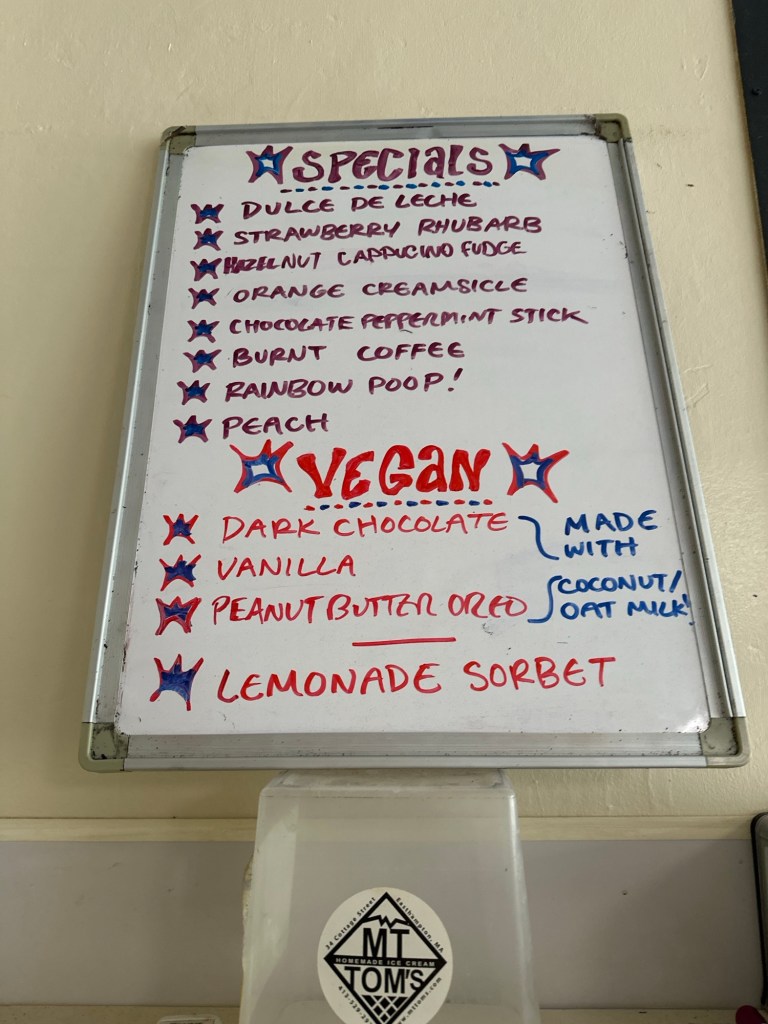 SPECIALS
DULCE DE LECHE
STRAWBERRY RHUBARB
HAZELNUT CAPPUCINO FUDGE
ORANGE CREAMSICLE
CHOCOLATE PEPPERMINT STICK
BURNT COFFEE
RAINBOW POOP!
PEACH
VEGAN
DARK CHOCOLATE
VANILLA
PEANUT BUTTER OREO
MADE
WITH
COCONUT/
OAT MILK!
LEMONADE SORBET
34 Cottage Street
Easthampton, MA
MT
HOMEMADE ICE CREAM
TOM'S
www.mttoms.com